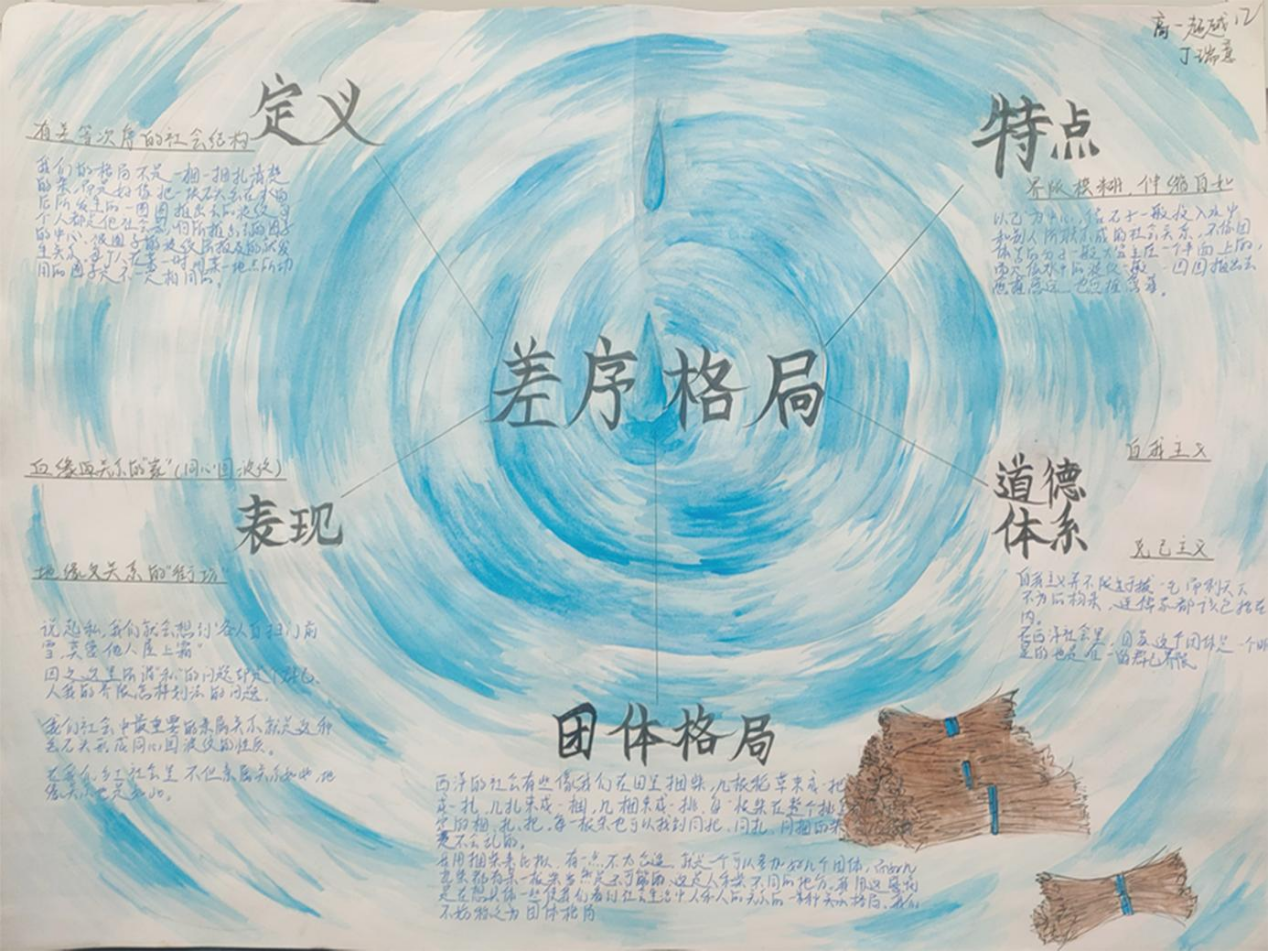 高一超越12
丁瑞意
定义
有差等次序的社会结构
我们的格局不是一捆一捆扎清楚
的柴,而是好像把一块石头丢在水面
后所发生的一圈圈推出去的波纹,每
个人都是他社会影响所推出去的圈子
的中心。被圈子的波纹所推及的就发
生关系,每个人在某一时间某一地点所动
用的圈子是不一定相同的。
特点
界限模糊、伸缩自如
以己为中心,像石子一般投入水中
和别人所联系成的社会关系,不像团
体中的分子一般大家立在一个平面上的,
而是像水中的波纹一般,一圈圈推出去
愈推愈远,也愈推愈薄。
差序格局
血缘与关系的"家"(同心圆波纹)
表现
地缘与关系的"街坊"
说起私,我们就会想到"各人自扫门前
雪,莫管他人屋上霜"
因之,这里所谓"私"的问题却是个群己、
人我的界限怎样划法的问题。
我们社会中最重要的亲属关系就是这种
丢石头形成同心圆波纹的性质。
在我们乡土社会里,不但亲属关系如此,地
缘关系也是如此。
道德
体系
自我主义
克己主义
自我主义并不限于拔一毛而利天下
不为的杨朱,连儒家都该包括在
内。
在西洋社会里,国家这个团体是一个明
显的也是唯一的群己界限
团体格局
西洋的社会有些像我们在田里捆柴,几根稻草束成一把
成一扎,几扎束成一捆,几捆束成一挑。每一根柴在整个挑
中的捆、扎、把。每一根柴也可以找到同把、同扎、同捆的柴
是不会乱的。
我用捆柴来比拟,有一点不太合适,就是一个可以参加好几个团体,而好几
不妨称之为团体格局